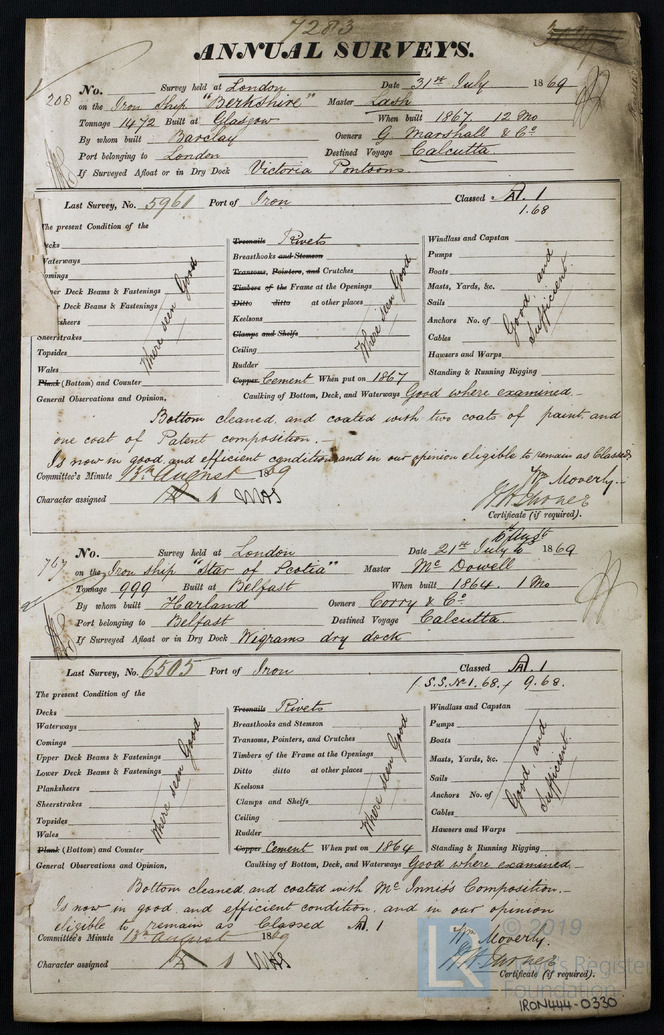 7283
ANNUAL SURVEYS.
208 No. Survey held at London Date 31st July 1869
on the Iron Ship "Berkshire" Master Lash
Tonnage 1472 Built at Glasgow When built 1867 12 Mo
By whom built Barclay Owners G. Marshall & Co
Port belonging to London Destined Voyage Calcutta
If Surveyed Afloat or in Dry Dock Victoria Pontoons.
Last Survey, No. 5961 Port of Iron Classed A 1
1.68
The present Condition of the
Decks
Waterways
Comings
Upper Deck Beams & Fastenings
Lower Deck Beams & Fastenings
Planksheers
Sheerstrakes
Topsides
Wales
Plank (Bottom) and Counter
Where seen Good
Treenails Rivets
Breasthooks and Stemson
Transoms, Pointers, and Crutches
Timbers of the Frame at the Openings
Ditto ditto at other places
Keelsons
Clamps and Shelfs
Ceiling
Rudder
Copper Cement When put on 1867
Where seen Good
Windlass and Capstan
Pumps
Boats
Masts, Yards, &c.
Sails
Anchors No. of
Cables
Hawsers and Warps
Standing & Running Rigging
Good and Sufficient
General Observations and Opinion, Caulking of Bottom, Deck, and Waterways Good where examined.
Bottom cleaned and coated with two coats of paint and
one coat of Patent composition.
Is now in good and efficient condition and in our opinion eligible to remain as Classed
Committee's Minute 13th August 1869
Wm Moverly.
Character assigned A 1
Certificate (if required).
10 Augt
767 No. Survey held at London Date 21st July 1869
on the Iron ship "Star of Scotia" Master Mc Dowell
Tonnage 999 Built at Belfast When built 1864. 1 Mo
By whom built Harland Owners Corry & Co
Port belonging to Belfast Destined Voyage Calcutta
If Surveyed Afloat or in Dry Dock Wigrams dry dock
Last Survey, No. 6505 Port of Iron Classed A 1
(S.S. No 1. 68.) 9.68.
The present Condition of the
Decks
Waterways
Comings
Upper Deck Beams & Fastenings
Lower Deck Beams & Fastenings
Planksheers
Sheerstrakes
Topsides
Wales
Plank (Bottom) and Counter
Where seen Good
Treenails Rivets
Breasthooks and Stemson
Transoms, Pointers, and Crutches
Timbers of the Frame at the Openings
Ditto ditto at other places
Keelsons
Clamps and Shelfs
Ceiling
Rudder
Copper Cement When put on 1864
Where seen Good
Windlass and Capstan
Pumps
Boats
Masts, Yards, &c.
Sails
Anchors No. of
Cables
Hawsers and Warps
Standing & Running Rigging
Good and Sufficient
General Observations and Opinion, Caulking of Bottom, Deck, and Waterways Good where examined
Bottom cleaned and coated with Mc Innis's Composition.
Is now in good and efficient condition and in our opinion
eligible to remain as Classed A 1
Committee's Minute 13th August 1869
Wm Moverly.
Character assigned A 1
Certificate (if required).
© 2019
LR
Lloyd's Register
Foundation
IRON444-0330